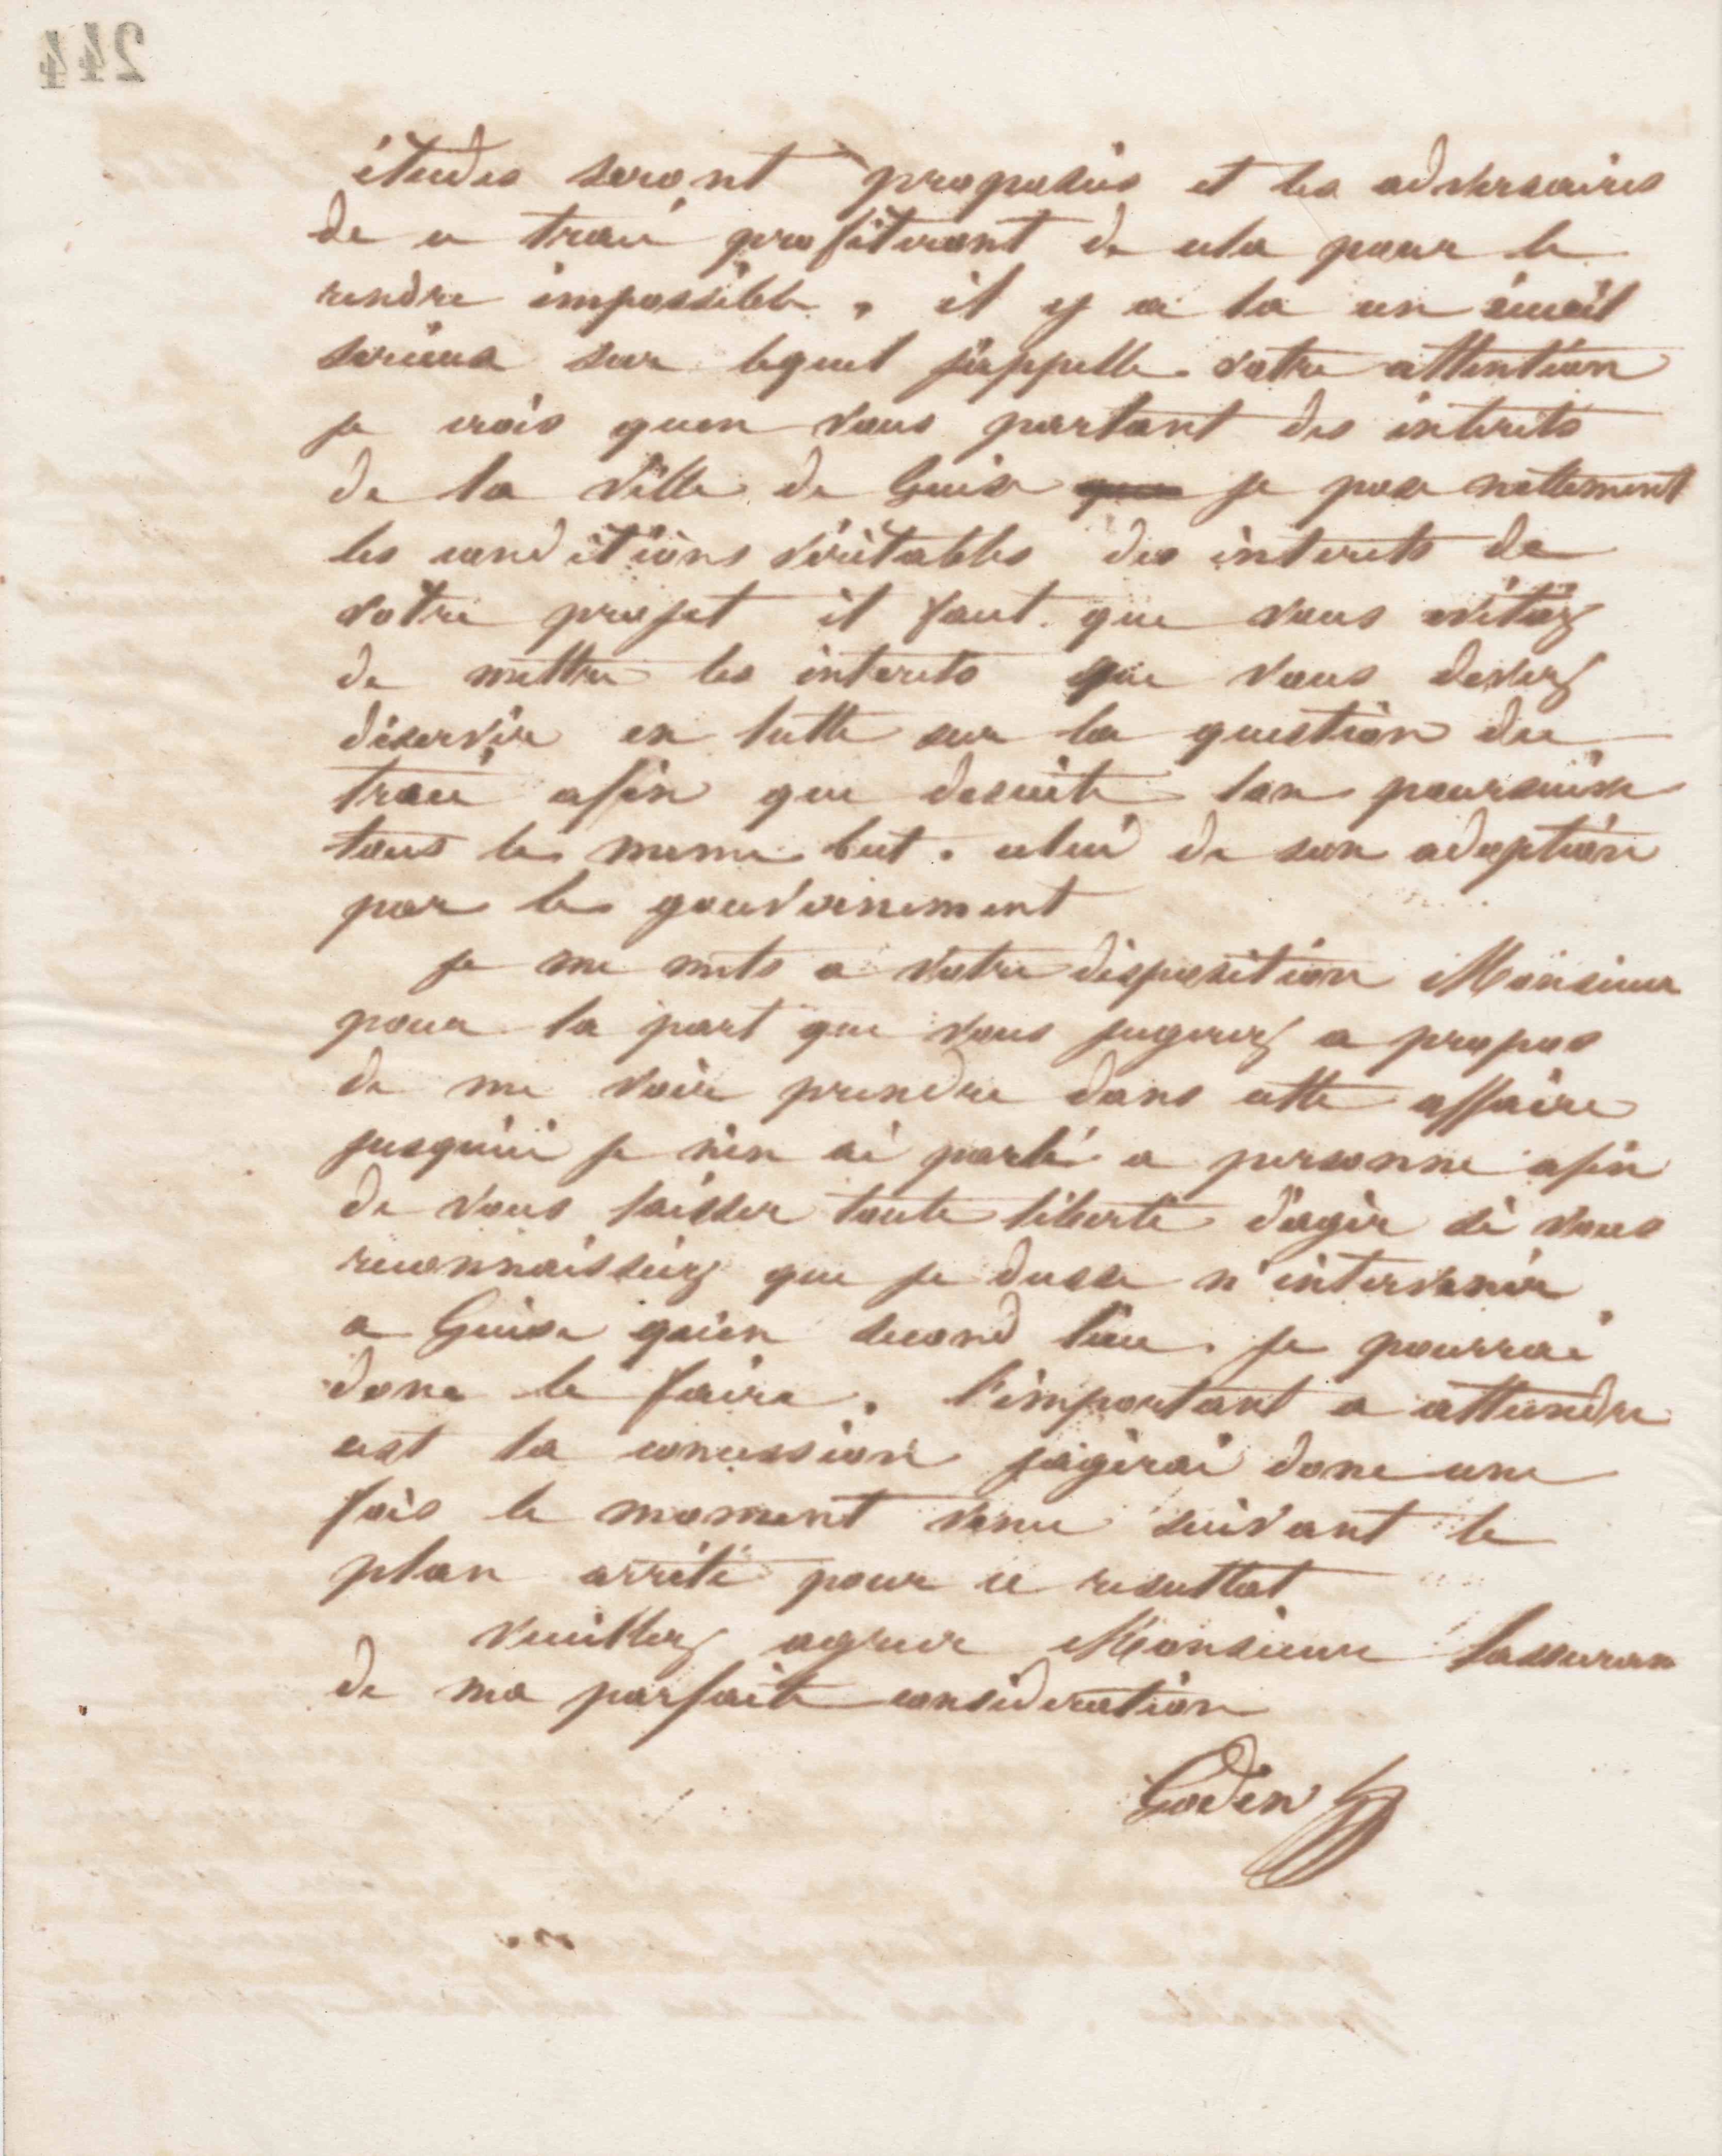 244
études seront proposées et les adversaires
de ce tracé profiteront de cela pour le
rendre impossible, il y a la un écueil
serieux sur lequel j'appelle votre attention
je crois quen vous partant des interets
de la ville de Guise que je pose nettement
les conditions véritables des interets de
votre projet il faut que vous évitiez
de mettre les interets que vous devez
déservir en lutte sur la question du
tracé afin que desuite lon poursuive
tous le meme but. celui de son adoption
par le gouvernement
je me mets a votre disposition Monsieur
pour la part que vous jugerez a propos
de me voir prendre dans cette affaire
jusquici je nen ai parlé a personne afin
de vous laisser toute liberté d'agir si vous
reconnaissiez que je dusse n'intervenir
a Guise quen second lieu. je pourrai
donc le faire. l'important a attendre
est la concession jagirai donc une
fois le moment venu suivant le
plan arrété pour ce resultat
veuillez agreer Monsieur lassuran
de ma parfaite consideration
Godin